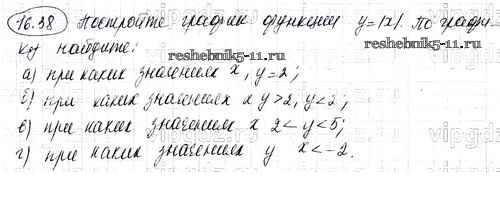 16.38 Постройте график функции y=|x|. По графи-
ку найдите:
reshebnik5-11.ru
reshebnik5-11.ru
а) при каких значениях x, y=2;
б) при каких значениях x y>2, y<2;
в) при каких значениях x 2<y<5;
г) при каких значениях y x<-2.